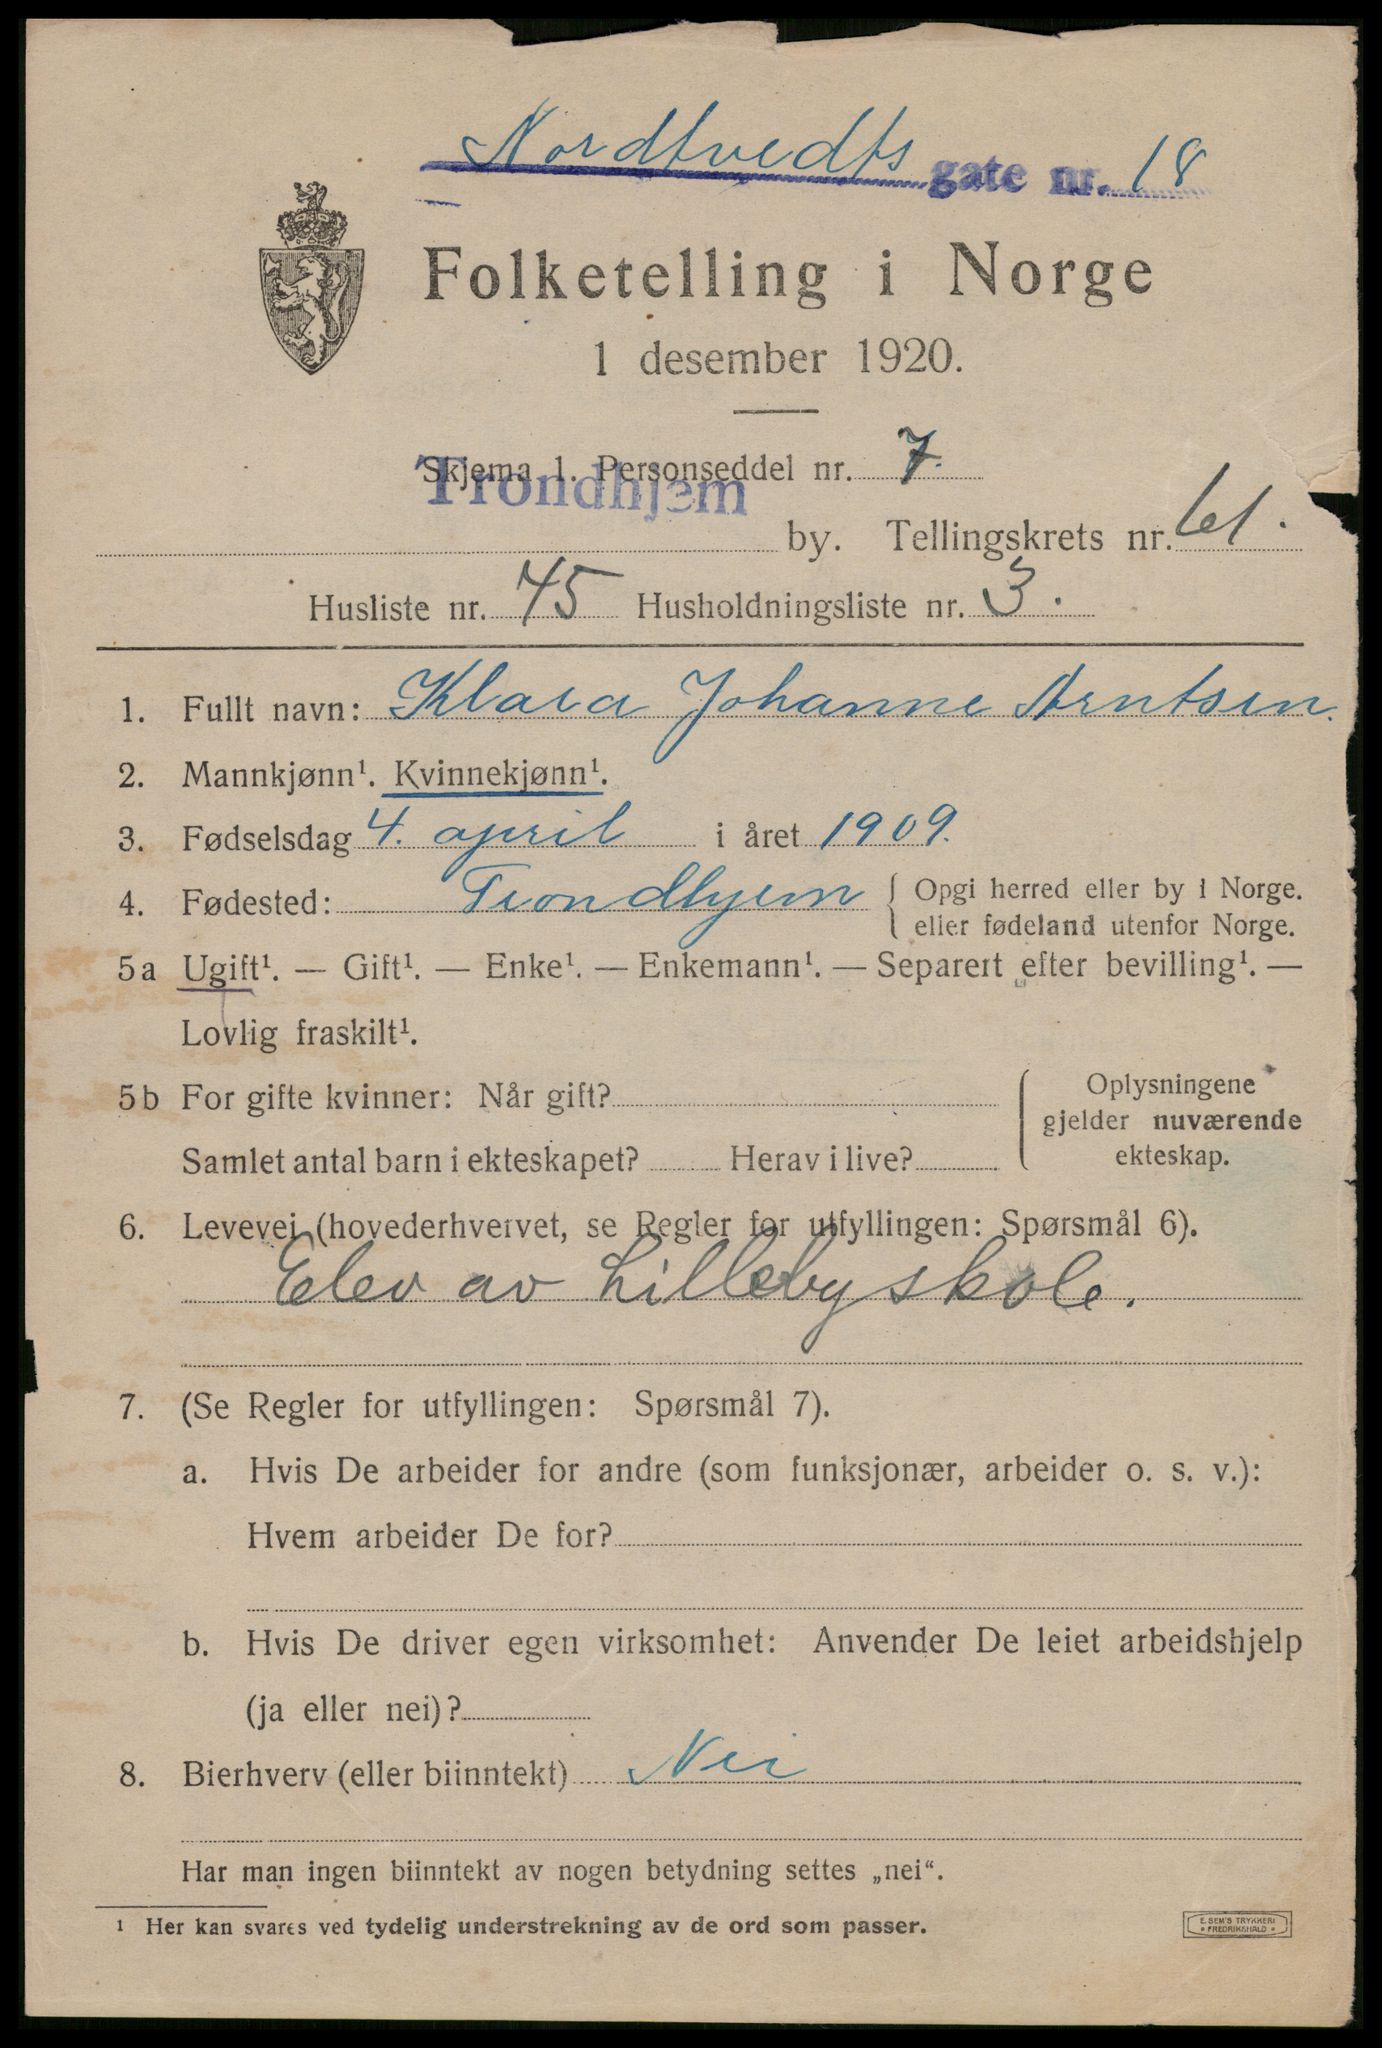 Nordtvedts gate nr. 18
Folketelling i Norge
1 desember 1920.
Skjema 1. Personseddel nr. 7.
Trondhjem by. Tellingskrets nr. 61.
Husliste nr. 45 Husholdningsliste nr. 3.
1. Fullt navn: Klara Johanne Arntsen.
2. Mannkjønn¹. Kvinnekjønn¹.
3. Fødselsdag 4. april i året 1909.
4. Fødested: Trondhjem { Opgi herred eller by i Norge.
eller fødeland utenfor Norge.
5a Ugift¹. — Gift¹. — Enke¹. — Enkemann¹. — Separert efter bevilling¹. —
Lovlig fraskilt¹.
5b For gifte kvinner: Når gift?
Samlet antal barn i ekteskapet? Herav i live?
Oplysningene
gjelder nuværende
ekteskap.
6. Levevei (hovederhvervet, se Regler for utfyllingen: Spørsmål 6).
Elev av Lillebyskole.
7. (Se Regler for utfyllingen: Spørsmål 7).
a. Hvis De arbeider for andre (som funksjonær, arbeider o. s. v.):
Hvem arbeider De for?
b. Hvis De driver egen virksomhet: Anvender De leiet arbeidshjelp
(ja eller nei)?
8. Bierhverv (eller biinntekt) Nei
Har man ingen biinntekt av nogen betydning settes „nei“.
1 Her kan svares ved tydelig understrekning av de ord som passer.
E. SEM'S TRYKKERI
* FREDRIKSHALD *